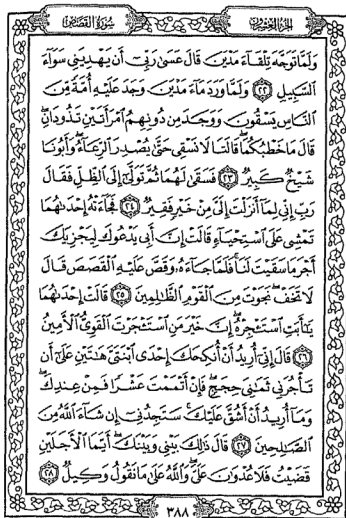 الجزء العشرون
سورة القصص
وَلَمَّا تَوَجَّهَ تِلْقَآءَ مَدْيَنَ قَالَ عَسَىٰ رَبِّىٓ أَن يَهْدِيَنِى سَوَآءَ
ٱلسَّبِيلِ ٢٢ وَلَمَّا وَرَدَ مَآءَ مَدْيَنَ وَجَدَ عَلَيْهِ أُمَّةً مِّنَ
ٱلنَّاسِ يَسْقُونَ وَوَجَدَ مِن دُونِهِمُ ٱمْرَأَتَيْنِ تَذُودَانِ ۖ
قَالَ مَا خَطْبُكُمَا ۖ قَالَتَا لَا نَسْقِى حَتَّىٰ يُصْدِرَ ٱلرِّعَآءُ ۖ وَأَبُونَا
شَيْخٌ كَبِيرٌ ٢٣ فَسَقَىٰ لَهُمَا ثُمَّ تَوَلَّىٰٓ إِلَى ٱلظِّلِّ فَقَالَ
رَبِّ إِنِّى لِمَآ أَنزَلْتَ إِلَىَّ مِنْ خَيْرٍ فَقِيرٌ ٢٤ فَجَآءَتْهُ إِحْدَىٰهُمَا
تَمْشِى عَلَى ٱسْتِحْيَآءٍ قَالَتْ إِنَّ أَبِى يَدْعُوكَ لِيَجْزِيَكَ
أَجْرَ مَا سَقَيْتَ لَنَا ۚ فَلَمَّا جَآءَهُۥ وَقَصَّ عَلَيْهِ ٱلْقَصَصَ قَالَ
لَا تَخَفْ ۖ نَجَوْتَ مِنَ ٱلْقَوْمِ ٱلظَّٰلِمِينَ ٢٥ قَالَتْ إِحْدَىٰهُمَا
يَٰٓأَبَتِ ٱسْتَـْٔجِرْهُ ۖ إِنَّ خَيْرَ مَنِ ٱسْتَـْٔجَرْتَ ٱلْقَوِىُّ ٱلْأَمِينُ
٢٦ قَالَ إِنِّىٓ أُرِيدُ أَنْ أُنكِحَكَ إِحْدَى ٱبْنَتَىَّ هَٰتَيْنِ عَلَىٰٓ أَن
تَأْجُرَنِى ثَمَٰنِىَ حِجَجٍ ۖ فَإِنْ أَتْمَمْتَ عَشْرًا فَمِنْ عِندِكَ ۖ
وَمَآ أُرِيدُ أَنْ أَشُقَّ عَلَيْكَ ۚ سَتَجِدُنِىٓ إِن شَآءَ ٱللَّهُ مِنَ
ٱلصَّٰلِحِينَ ٢٧ قَالَ ذَٰلِكَ بَيْنِى وَبَيْنَكَ ۖ أَيَّمَا ٱلْأَجَلَيْنِ
قَضَيْتُ فَلَا عُدْوَٰنَ عَلَىَّ ۖ وَٱللَّهُ عَلَىٰ مَا نَقُولُ وَكِيلٌ ٢٨
٣٨٨